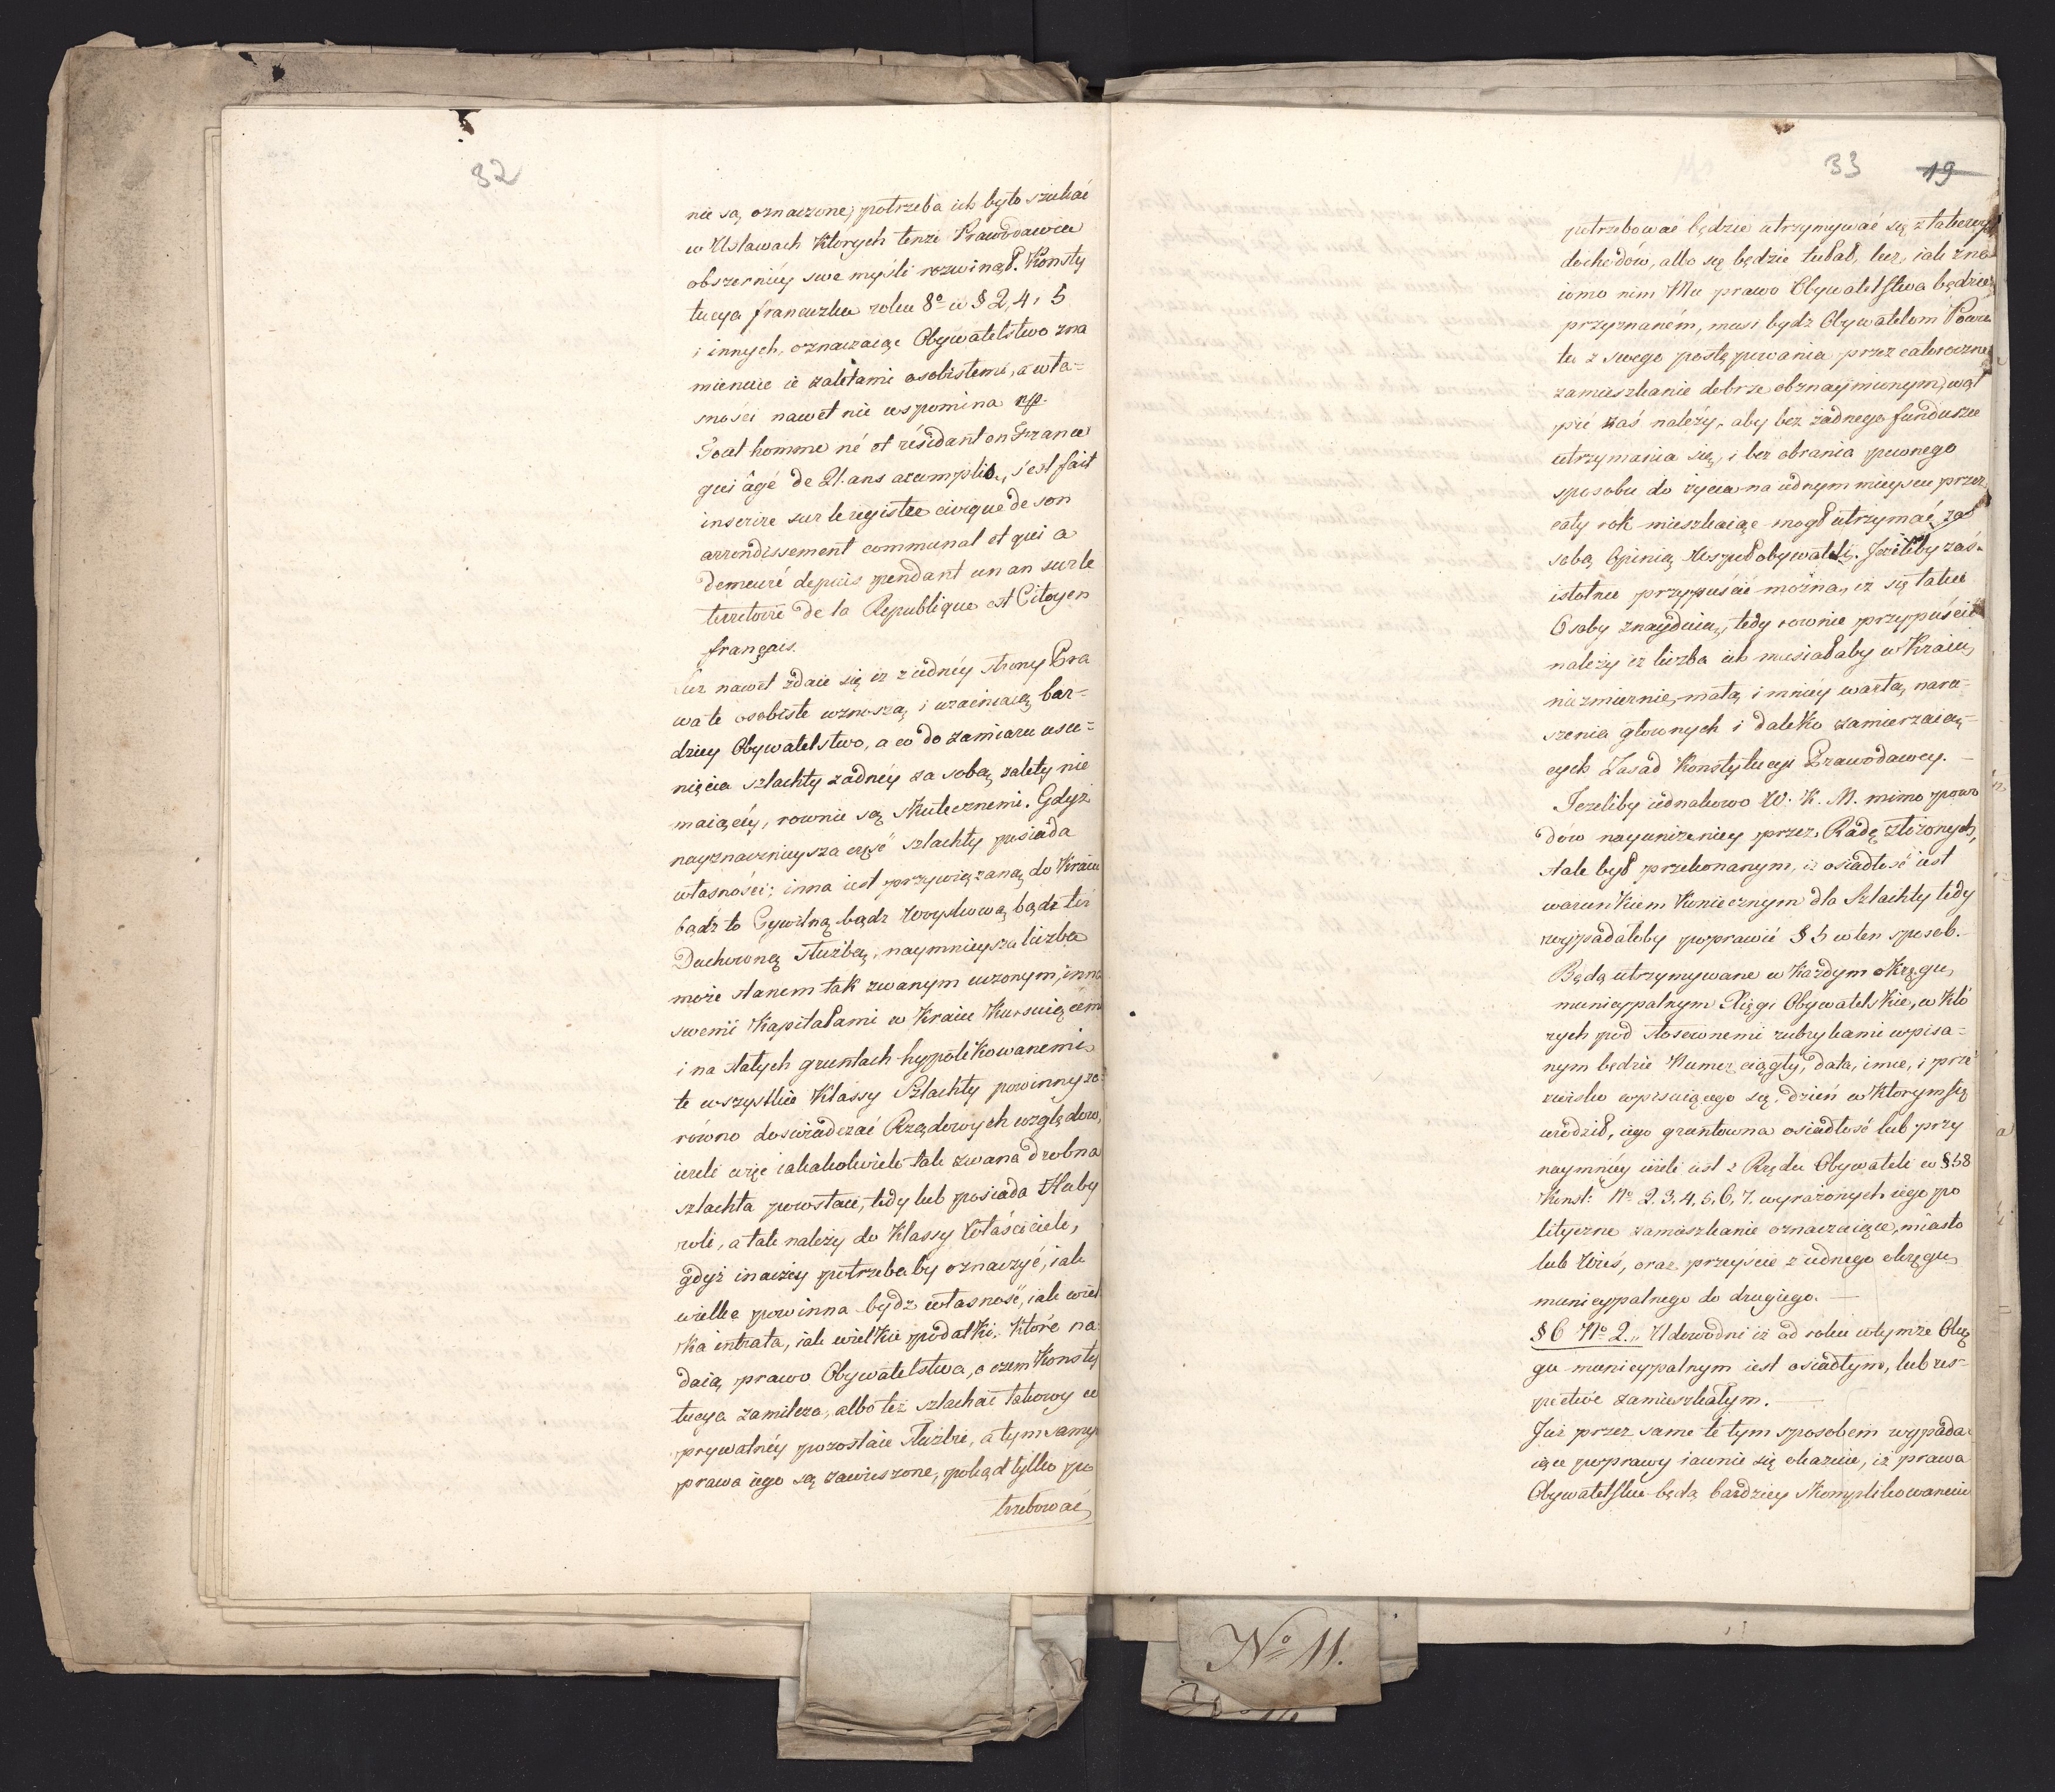 32
nie są oznaczone, potrzeba ich było szukać
w Ustawach których tenże Prawodawca
obszerniey swe myśli rozwinął. Konsty
tucya francuzka roku 8º w § 2, 4, 5
i innych, oznaczaiąc Obywatelstwo zna
mienuie ie zaletami osobistemi, a wła=
sności nawet nie wspomina np.
Tout homme né et résidant en France
qui âgé de 21. ans accomplis, s'est fait
inscrire sur le registre civique de son
arrondissement communal et qui a
demeuré depuis pendant un an sur le
territoire de la Republique est Citoyen
français.
Lecz nawet zdaie się iż z iedney strony Pra
wa te osobiste wznoszą i uzacniaią bar=
dziey Obywatelstwo, a co do zamiaru usu=
nięcia szlachty żadney za sobą zalety nie
maiącey, rownie są skutecznemi. Gdyż
nayznacznieysza część szlachty posiada
własności; inna iest przywiązaną do Kraiu
bądź to Cywilną bądź Woyskową bądz też
Duchowną służbą, naymnieysza liczba
może stanem tak zwanym uczonym, inna
swemi Kapitałami w Kraiu kursuiącemi
i na stałych gruntach hypotekowanemi
te wszystkie Klassy Szlachty powinny za=
równo doświadczać Rządowych względow,
ieżeli więc iakakolwiek tak zwana drobna
szlachta powstaie, tedy lub posiada Sztuby
roli, a tak należy do Klassy właścicieli,
gdyż inaczey potrzebaby oznaczyć, iak
wielka powinna bydz własność, iak wiel
ka intrata, iak wielkie podatki, które na
daią prawo Obywatelstwa, o czem Konsty
tucya zamilcza, albo też szlachcic takowy w
prywatney pozostaie służbie, a tym samym
prawa iego są zawieszone, pokąd tylko po
trzebować
33 19
potrzebować będzie utrzymywać się z takowych
dochodów, albo się będzie tułał, lecz, iak zna
iomo nim Mu prawo Obywatelstwa będzie
przyznaném, musi bydz Obywatelom Powia
tu z swego postępowania przez całoroczne
zamieszkanie dobrze obznaymionym, wąt
pić zaś należy, aby bez żadnego funduszu
utrzymania się, i bez obrania pewnego
sposobu do życia na iednym mieyscu przez
cały rok mieszkaiąc mogł utrzymać za
sobą Opinią Współobywateli. Jeżeliby zaś
istotnie przypuścić można, iż się takie
Osoby znayduią, tedy rownie przypuścić
należy iż liczba ich musiałaby w Kraiu
niezmiernie małą i mniey wartą naru=
szenia głownych i daleko zamierzaią=
cych Zasad Konstytucyi Prawodawcy. —
Jeżeliby iednakowo W. K. M. mimo powo
dów nayuniżeniey przez Radę złożonych,
stale był przekonanym, iż osiadłość iest
warunkiem koniecznym dla Szlachty tedy
wypadałoby poprawić § 5 w ten sposob.
Będą utrzymywane w każdym okręgu
municypalnym Xięgi Obywatelskie, w któ
rych pod stosownemi rubrykami wpisa=
nym będzie Numer ciągły, data, imie, i prze
zwisko wpisuiącego się, dzień w ktorym się
urodził, iego gruntowna osiadłość lub przy
naymniey ieżeli iest z Rzędu Obywateli w § 58
Konst: Nº 2. 3. 4. 5. 6. 7. wyrażonych iego po
lityczne zamieszkanie oznaczaiące, miasto
lub Wieś, oraz przeyście z iednego okręgu
municypalnego do drugiego. —
§ 6 Nº 2. „Udowodni iż od roku w tymże Okrę
gu municypalnym iest osiadłym, lub res=
pective zamieszkałym. —
Już przez same te tym sposobem wypada
iące poprawy iawnie się okazuie, iż prawa
Obywatelskie będą bardziey skomplikowaniu
Nº 11.